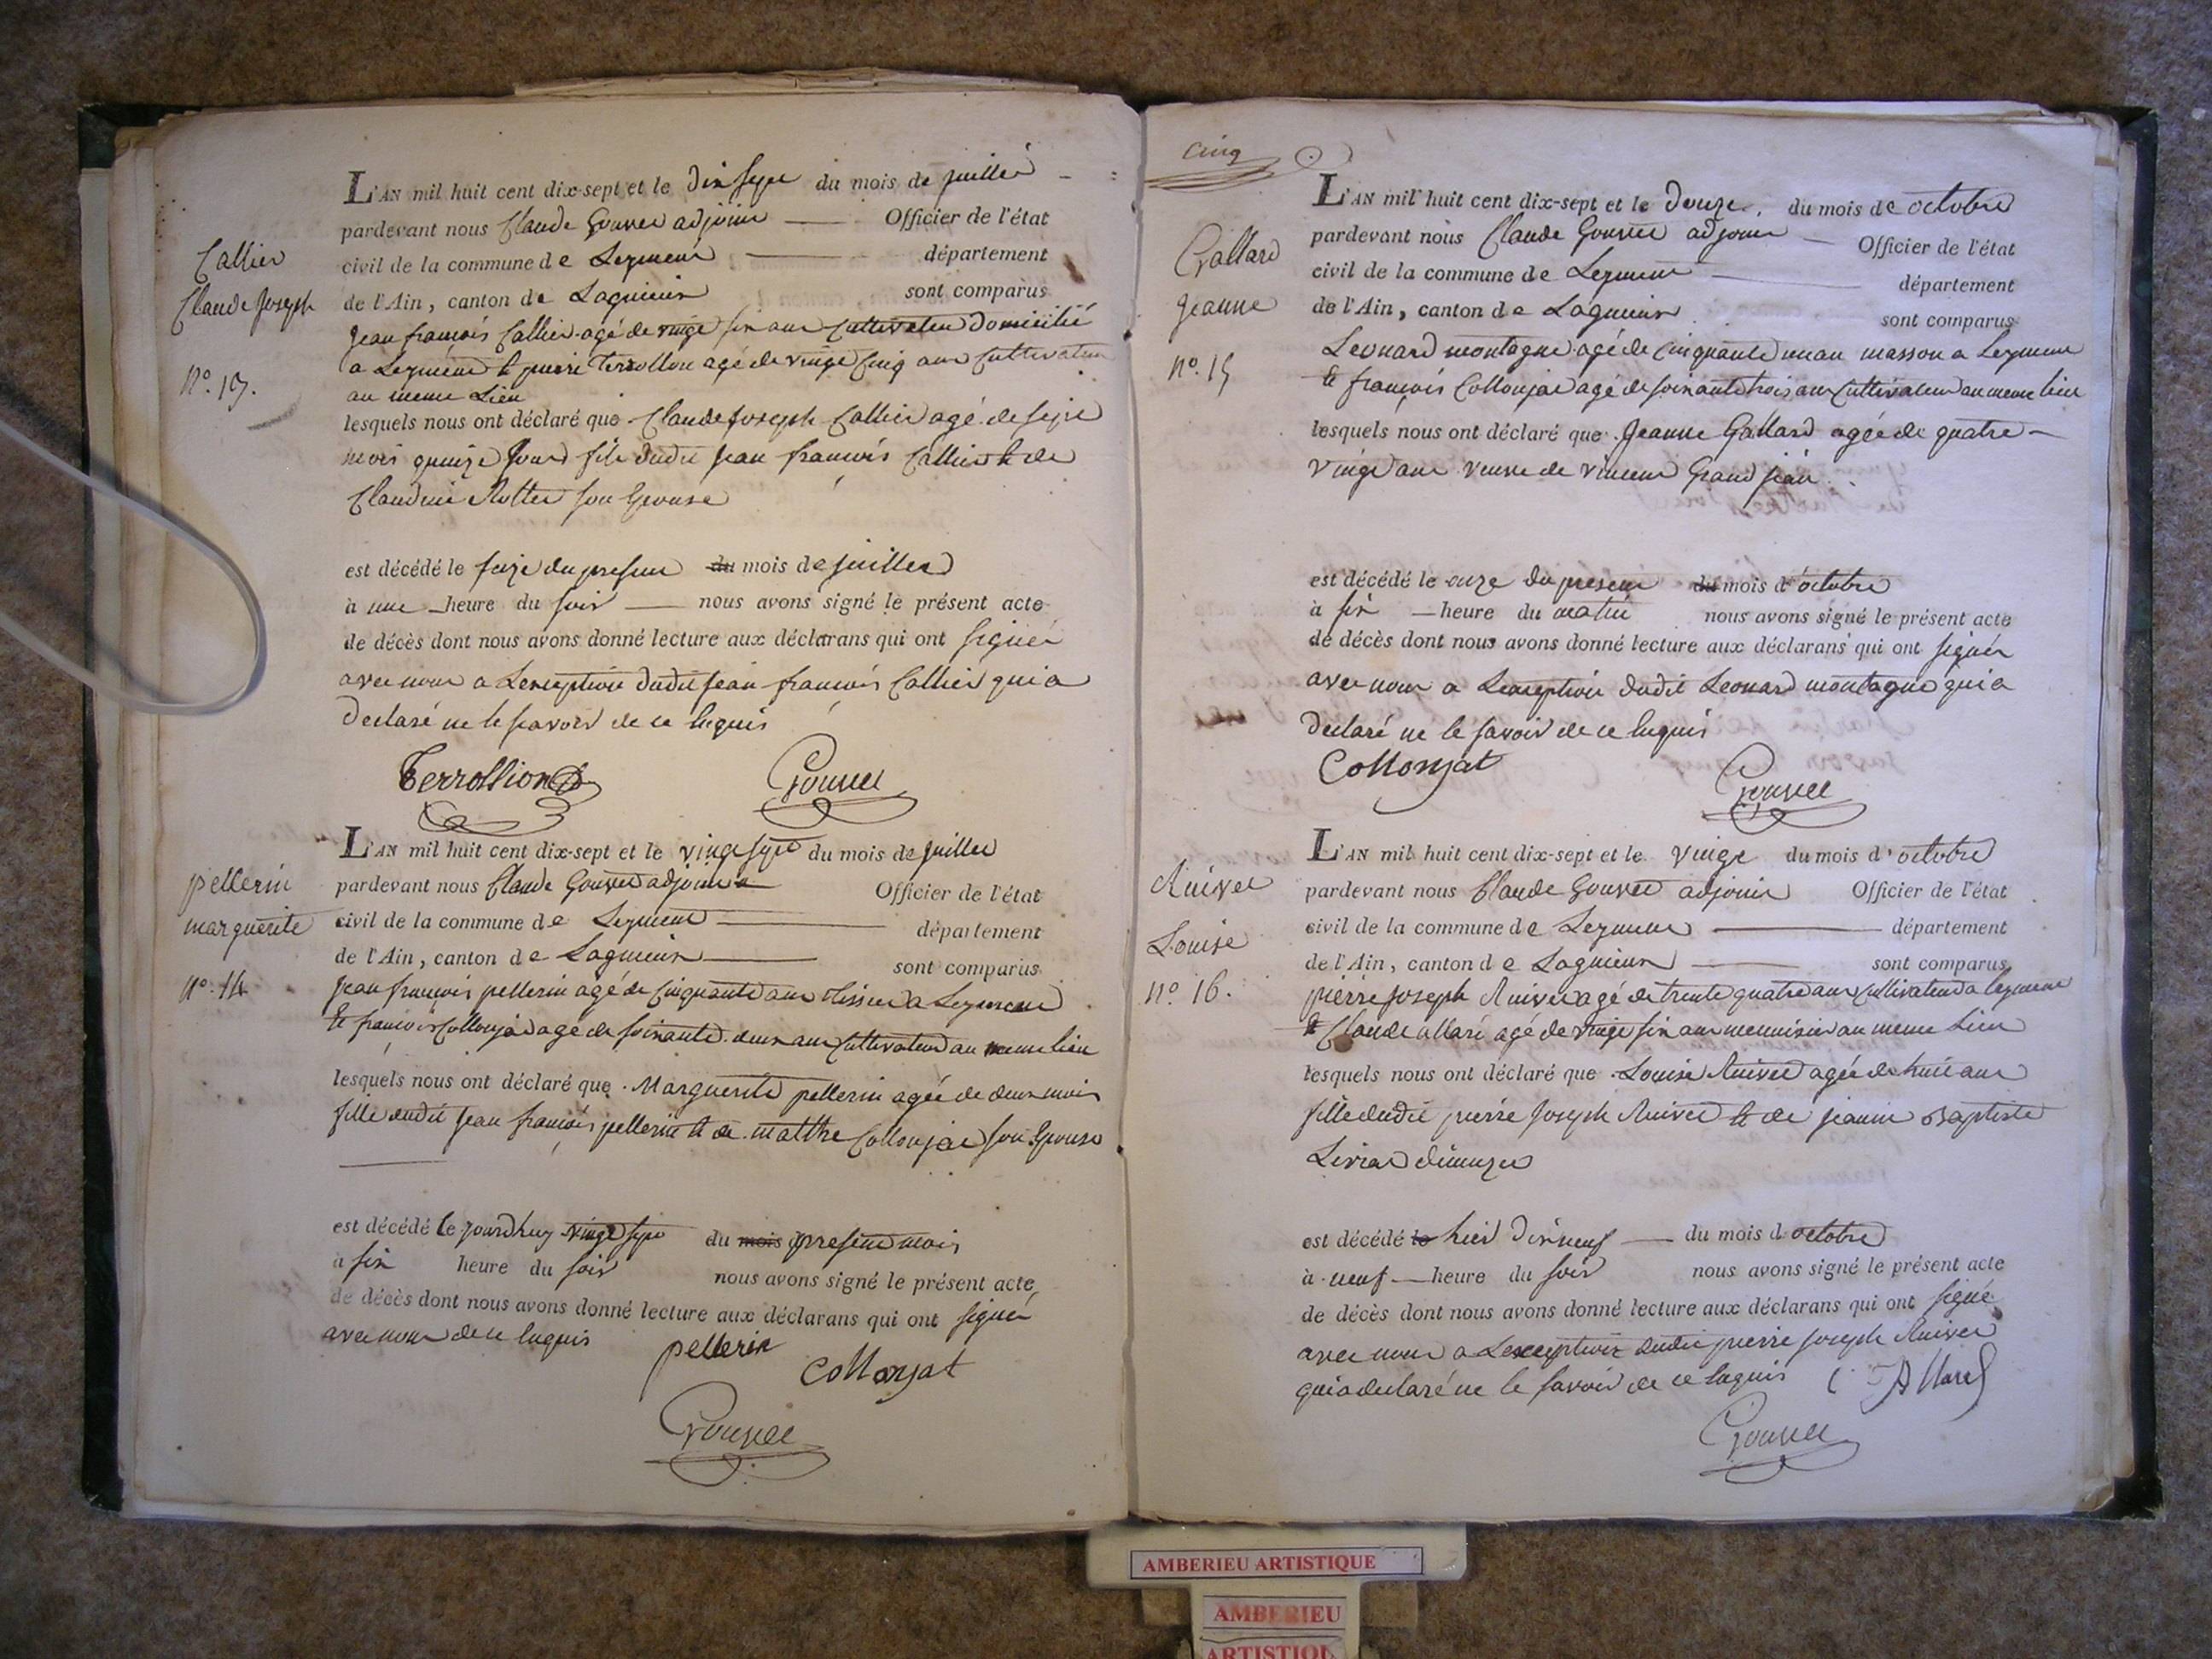 Callier
Claude Joseph
N.º 13.
L'AN mil huit cent dix-sept et le dix sept du mois de juillet
pardevant nous Claude Gouvet adjoint Officier de l'état
civil de la commune de Leyment département
de l'Ain, canton de Lagnieux sont comparus
Jean françois Callier agé de vingt six ans Cultivateur Domicilié
a Leyment et pierre Terrollion agé de vingt Cinq ans Cultivateur
au meme Lieu
lesquels nous ont déclaré que Claude Joseph Callier agé de sept
mois quinze Jours fils dudit Jean françois Callier et de
Claudine son Epouse
est décédé le seize du present du mois de juillet
à une heure du soir nous avons signé le présent acte
de décès dont nous avons donné lecture aux déclarans qui ont signés
avec nous a Lexception dudit Jean françois Callier qui a
declaré ne le savoir de ce Enquis
Terrollion Gouvet
pellerin
marguerite
N.º 14
L'AN mil huit cent dix-sept et le vingt sept du mois de juillet
pardevant nous Claude Gouvet adjoint Officier de l'état
civil de la commune de Leyment département
de l'Ain, canton de Lagnieux sont comparus
Jean françois pellerin agé de Cinquante ans Tissier a Leyment
et françois Collonjat agé de soixante deux ans Cultivateur au meme lieu
lesquels nous ont déclaré que Marguerite pellerin agée de deux mois
fille dudit Jean françois pellerin et de Collonjat son Epouse
est décédé le jourdhuy vingt sept du mois present mois
à six heure du soir nous avons signé le présent acte
de décès dont nous avons donné lecture aux déclarans qui ont signés
avec nous de ce Enquis
pellerin Collonjat
Gouvet
Cinq
Gallard
Jeanne
N.º 15
L'AN mil huit cent dix-sept et le Douze du mois de octobre
pardevant nous Claude Gouvet adjoint Officier de l'état
civil de la commune de Leyment département
de l'Ain, canton de Lagnieux sont comparus
Leonard montagne agé de Cinquante un an masson a Leyment
et françois Collonjat agé de soixante trois ans Cultivateur au meme lieu
lesquels nous ont déclaré que Jeanne Gallard agée de quatre
vingt ans veuve de vincent Grand jean
est décédé le onze du present du mois d'octobre
à six heure du matin nous avons signé le présent acte
de décès dont nous avons donné lecture aux déclarans qui ont signés
avec nous a Lexception dudit Leonard montagne qui a
declaré ne le savoir de ce Enquis
Collonjat
Gouvet
Louise
N.º 16.
L'AN mil huit cent dix-sept et le vingt du mois d'octobre
pardevant nous Claude Gouvet adjoint Officier de l'état
civil de la commune de Leyment département
de l'Ain, canton de Lagnieux sont comparus
pierre Joseph agé de trente quatre ans Cultivateur a Leyment
et Claude allard agé de vingt six ans menuisier au meme Lieu
lesquels nous ont déclaré que Louise agée de huit ans
fille dudit pierre Joseph et de jeanne Baptiste
est décédé le hier Dix neuf du mois d octobre
à neuf heure du soir nous avons signé le présent acte
de décès dont nous avons donné lecture aux déclarans qui ont signé
avec nous a Lexception dudit pierre Joseph
qui a declaré ne le savoir de ce Enquis
Gouvet
AMBERIEU ARTISTIQUE
AMBERIEU
ARTISTIQU